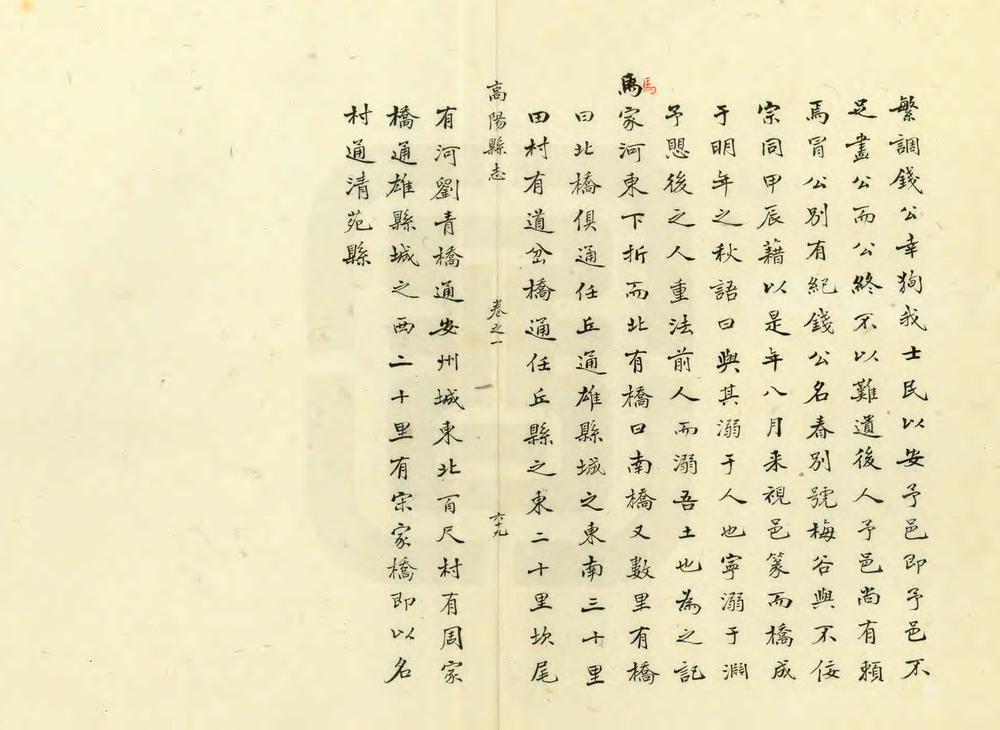 繁調錢公幸狥我士民以安予邑即予邑不
足盡公而公終不以難遺後人予邑尚有賴
焉冐公別有紀錢公名春別號梅谷與不佞
宗同甲辰藉以是年八月来視邑篆而橋成
于明年之秋語曰與其溺于人也寧溺于淵
予愳後之人重法前人而溺吾土也為之記
馬
禹家河東下折而北有橋曰南橋又數里有橋
曰北橋俱通任丘通雄縣城之東南三十里
田村有道岔橋通任丘縣之東二十里坎尾
高陽縣志
卷之一
六十九
有河劉青橋通安州城東北百尺村有周家
橋通雄縣城之西二十里有宋家橋即以名
村通清苑縣